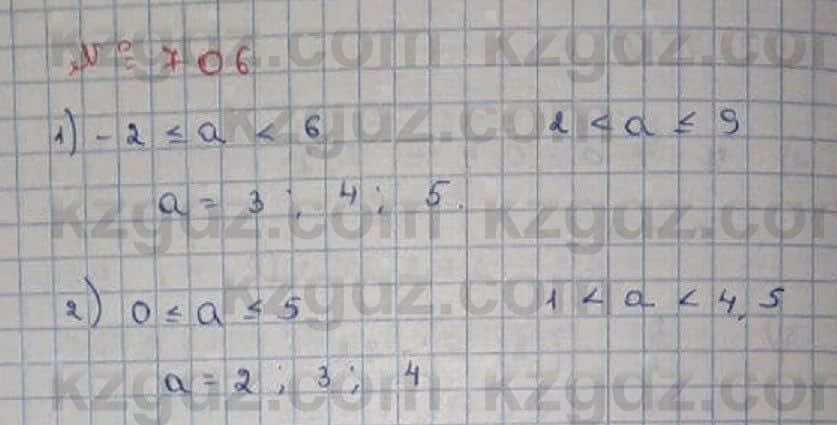 № 706
1) -2 ≤ a < 6 2 < a ≤ 9
a = 3 ; 4 ; 5.
2) 0 ≤ a ≤ 5 1 < a < 4,5
a = 2 ; 3 ; 4
kzgdz.com kzgdz.com
kzgdz.com
kzgdz.com kzgdz.com
kzgdz.com
kzgdz.com kzgdz.com